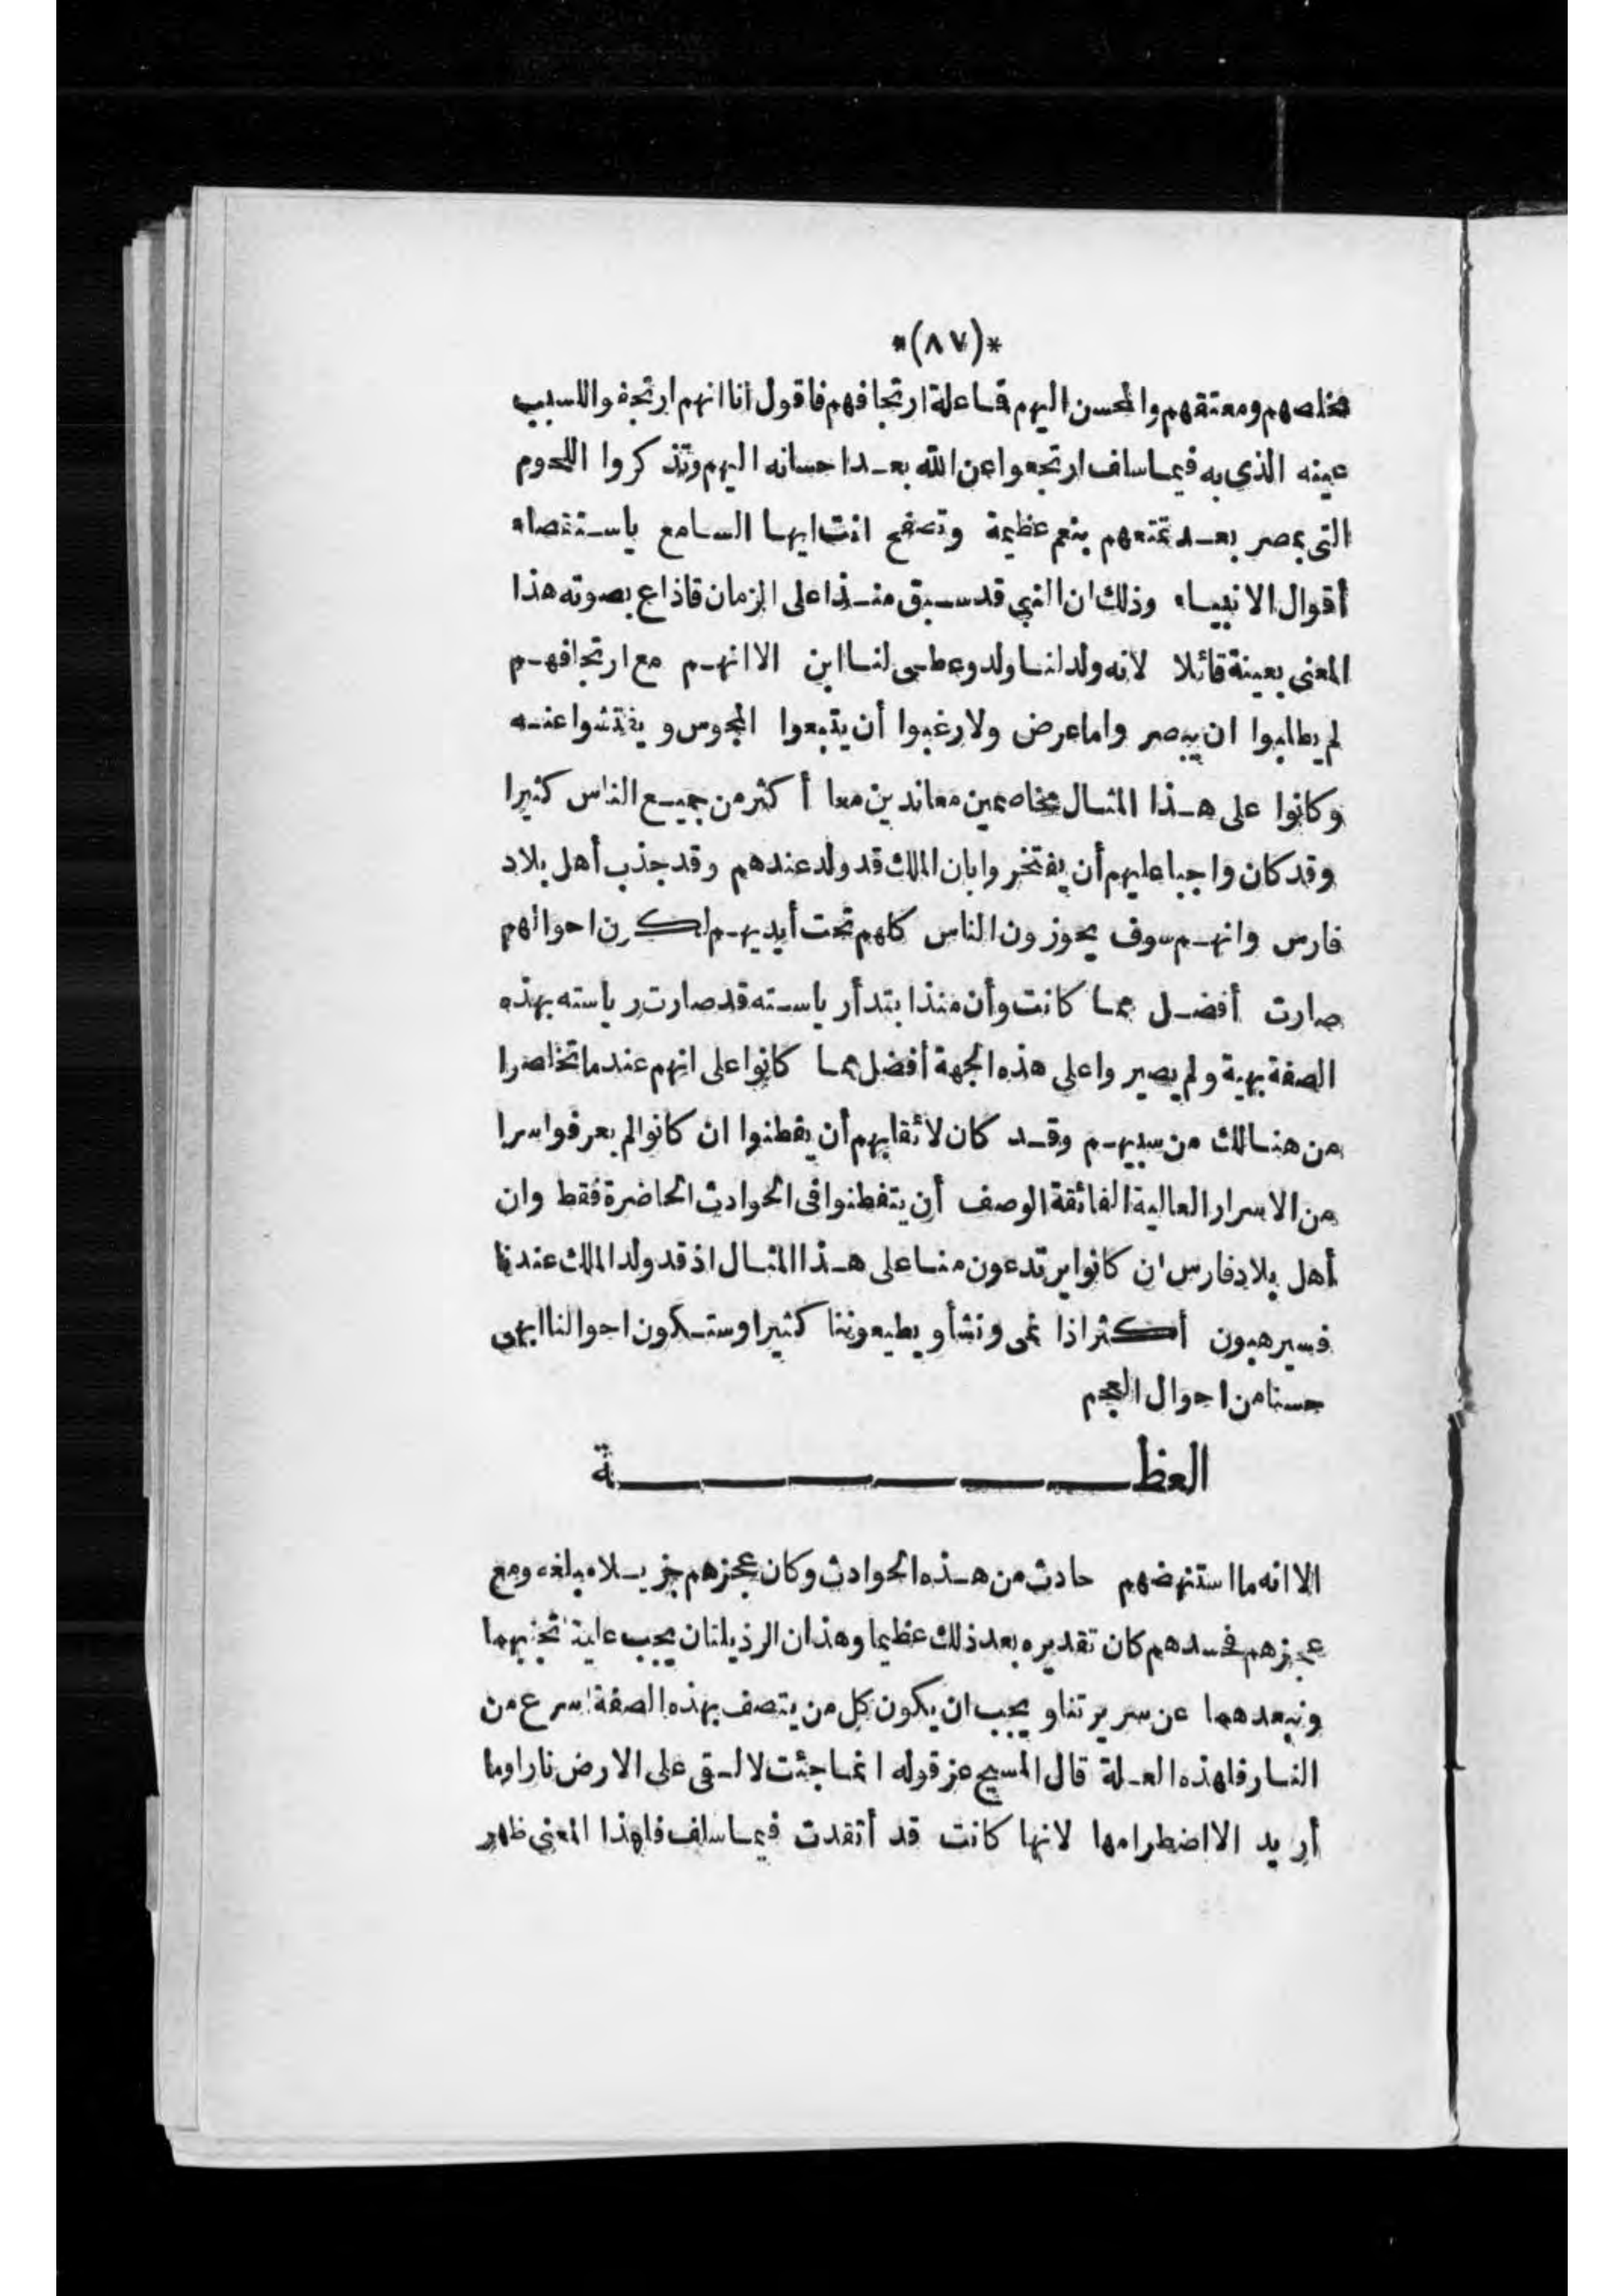 *(٨٧)*
مخلصهم ومعتقهم والمحسن اليهم فما علة ارتجافهم فاقول انا انهم ارتجفوا للسبب
عينه الذى به فيما سلف ارتجعوا عن الله بعد احسانه اليهم وتذكروا اللحوم
التى بمصر بعد تمتعهم بنعم عظيمة وتصفح انت ايها السامع باستقصاء
أقوال الانبياء وذلك ان النبي قد سبق منذ اعلى الزمان فاذاع بصوته هذا
المعنى بعينة قائلا لانه ولد لنا ولد وعطى لنا ابن الا انهم مع ارتجافهم
لم يطلبوا ان يبصروا ما عرض ولا رغبوا أن يتبعوا المجوس ويفتشوا عنه
وكانوا على هذا المثال مخاصمين معاندين معا أكثر من جميع الناس كثيرا
وقد كان واجبا عليهم أن يفتخروا بان الملك قد ولد عندهم وقد جذب أهل بلاد
فارس وانهم سوف يحوزون الناس كلهم تحت أيديهم لكن احوالهم
صارت أفضل مما كانت وأن منذ ابتدأ رياسته قد صارت رياسته بهذه
الصفة بهية ولم يصيروا على هذه الجهة أفضل مما كانوا على انهم عندما تخلصوا
من هنالك من سبيهم وقد كان لائقا بهم أن يفطنوا ان كانوا لم يعرفوا سرا
من الاسرار العالية الفائقة الوصف أن يتفطنوا فى الحوادث الحاضرة فقط وان
أهل بلاد فارس ان كانوا يرتدعون منا على هذا المثال اذ قد ولد الملك عندنا
فسيرهبون أكثر اذا نمى ونشأ ويطيعوننا كثيرا وستكون احوالنا ابهى
حسنا من احوال العجم
العظة
الا انه ما استنهضهم حادث من هذه الحوادث وكان عجزهم جزيلا مبلغه ومع
عجزهم فحسدهم كان تقديره بعد ذلك عظيما وهذان الرذيلتان يجب علينا تجنبهما
ونبعدهما عن سريرتنا ويجب ان يكون كل من يتصف بهذه الصفة اسرع من
النار فلهذه العلة قال المسيح عز قوله انما جئت لالقى على الارض نارا وما
أريد الا اضطرامها لانها كانت قد أتقدت فيما سلف فلهذا المعنى ظهر